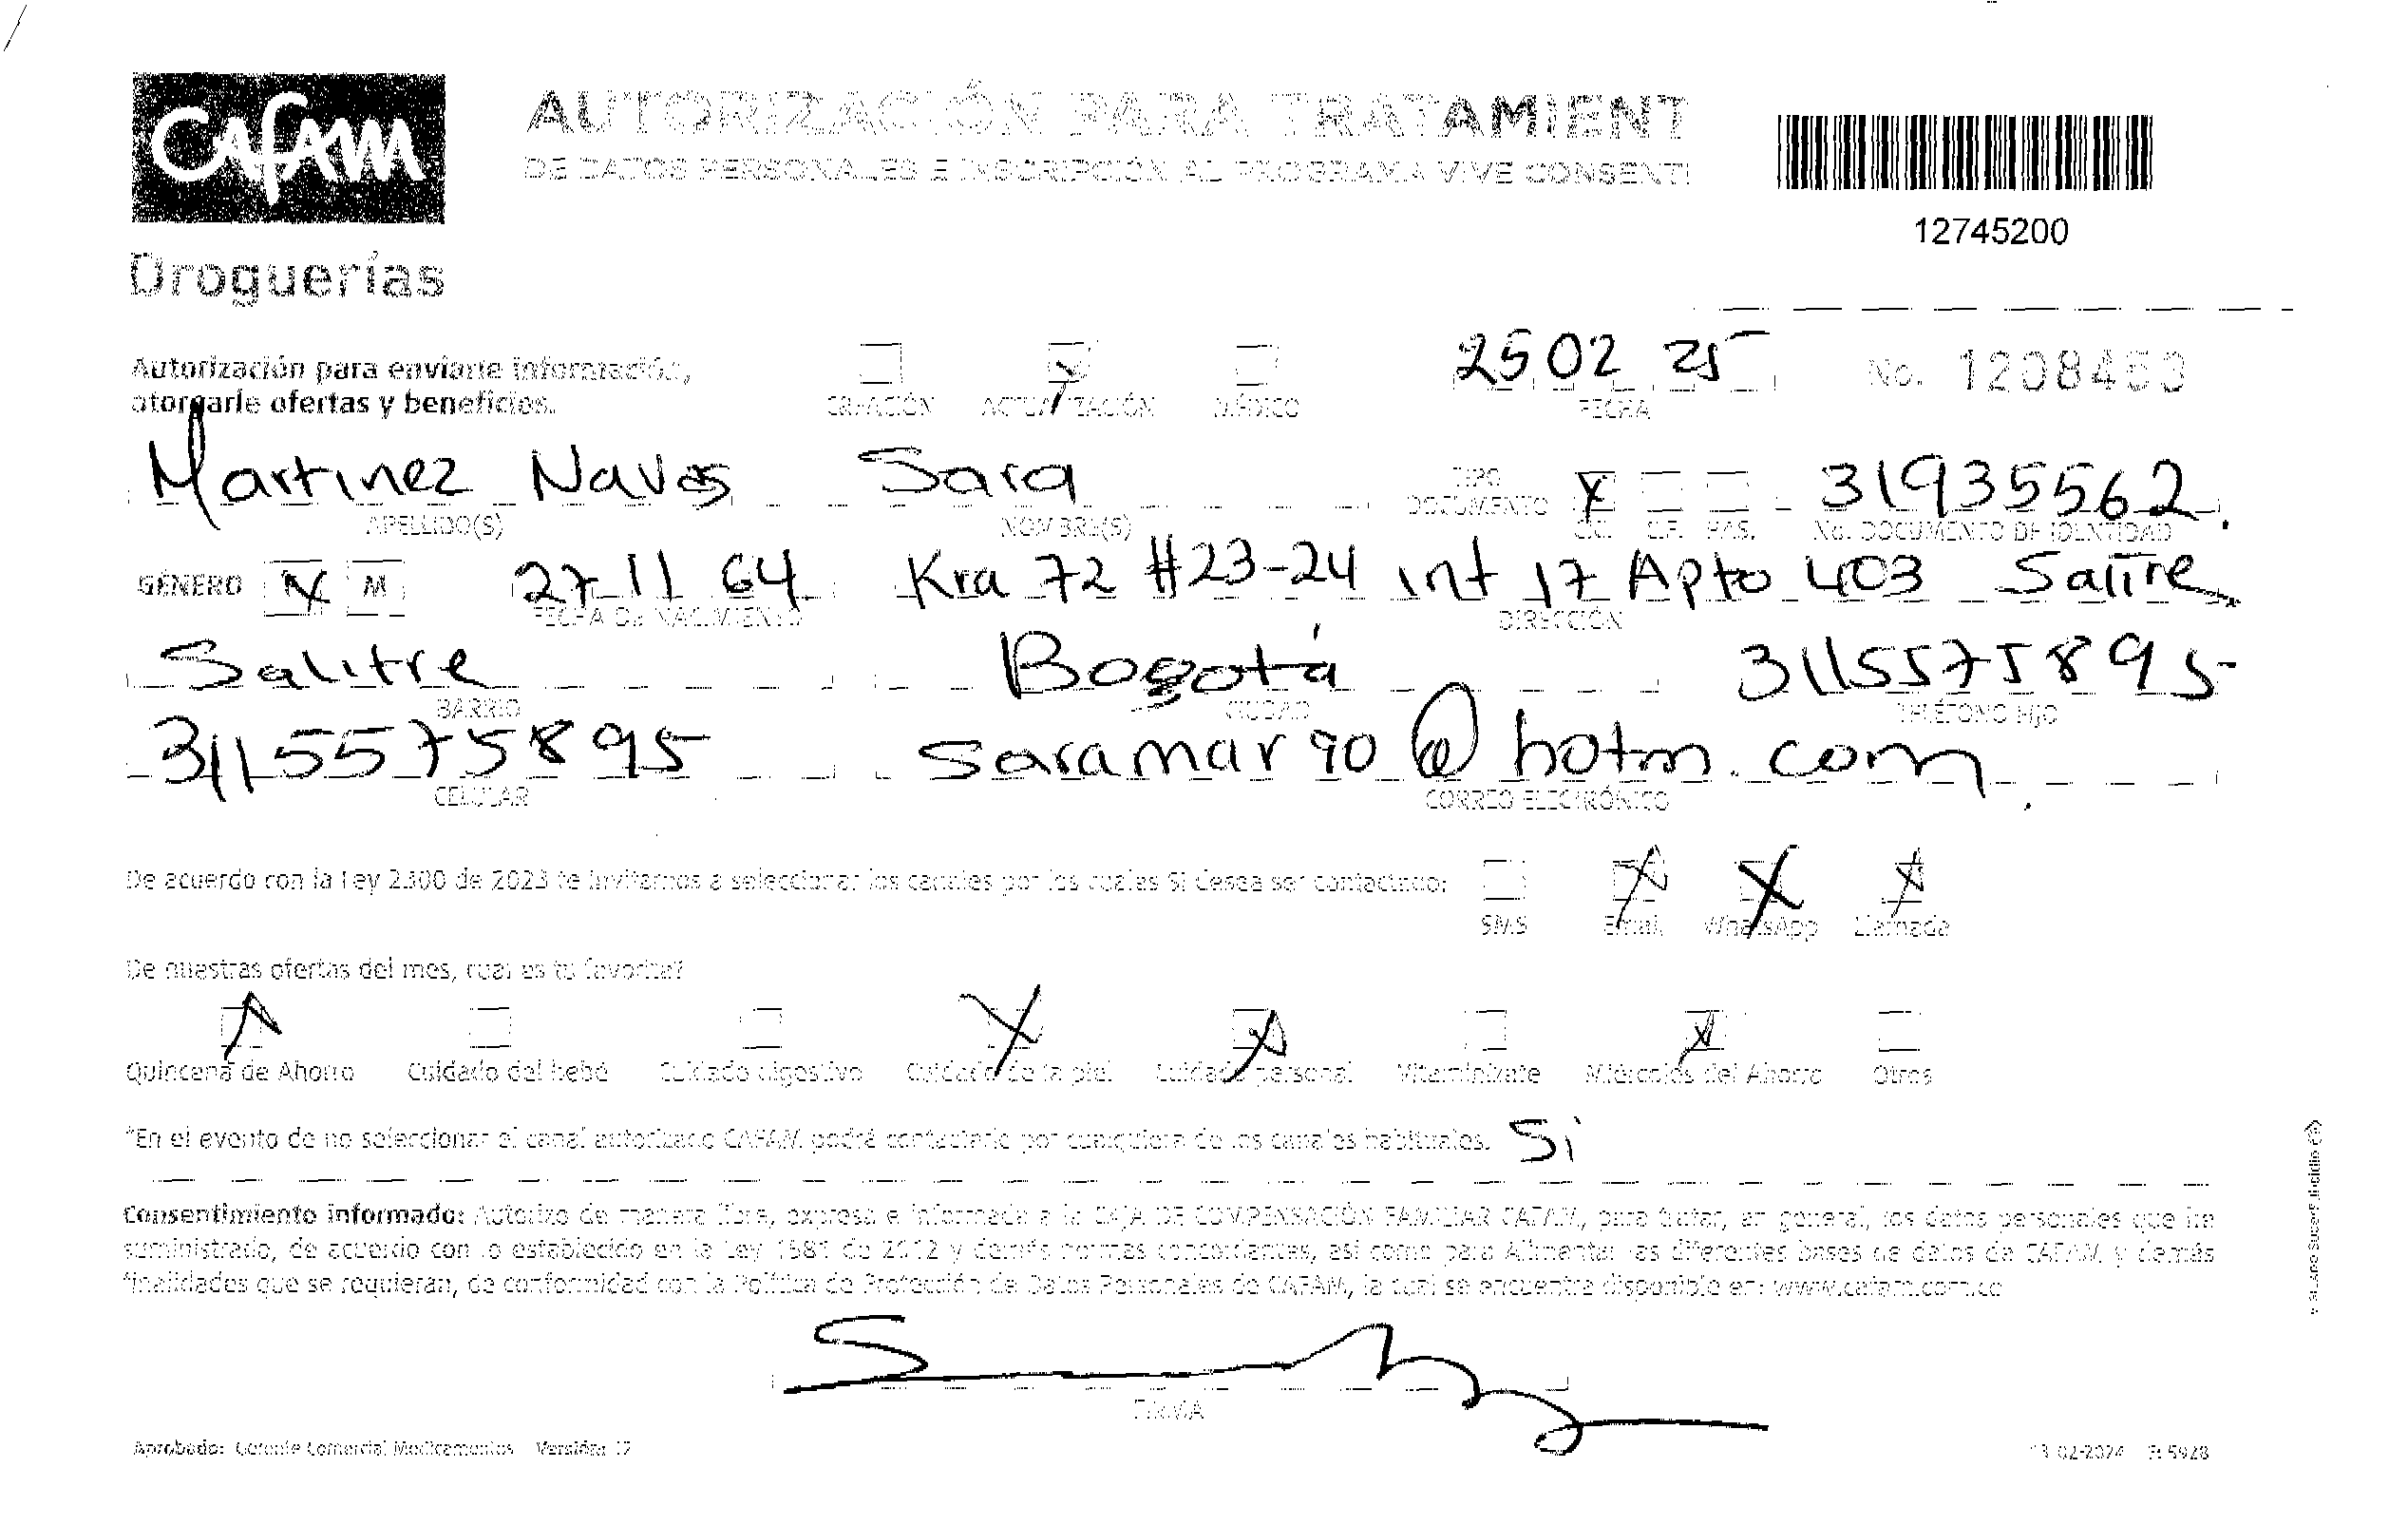 Cafam
AUTORIZACIÓN PARA TRATAMIENT
DE DATOS PERSONALES E INSCRIPCIÓN AL PROGRAMA VIVE CONSENTI
12745200
Droguerías
Autorización para enviarle información,
otorgarle ofertas y beneficios.
CREACIÓN ACTUALIZACIÓN MÉDICO
25 02 25
FECHA
No. 1208453
Martinez Navas Sara
APELLIDO(S) NOMBRE(S)
TIPO DOCUMENTO X C.C. C.E. PAS.
31935562.
No. DOCUMENTO DE IDENTIDAD
GÉNERO X M 27 11 64 Kra 72 #23-24 int 17 Apto 403 Salitre
FECHA DE NACIMIENTO DIRECCIÓN
Salitre Bogotá 3115575895
BARRIO CIUDAD TELÉFONO FIJO
3115575895 saramar90@hotm.com
CELULAR CORREO ELECTRÓNICO
De acuerdo con la Ley 2300 de 2023 te invitamos a seleccionar los canales por los cuales SI desea ser contactado:
SMS Email WhatsApp Llamada
De nuestras ofertas del mes, cual es tu favorita?
Quincena de Ahorro Cuidado del bebé Cuidado digestivo Cuidado de la piel Cuidado personal Vitamínizate Miércoles del Ahorro Otros
*En el evento de no seleccionar el canal autorizado CAFAM podrá contactarlo por cualquiera de los canales habituales. Si
Consentimiento informado: Autorizo de manera libre, expresa e informada a la CAJA DE COMPENSACIÓN FAMILIAR CAFAM, para tratar, en general, los datos personales que he
suministrado, de acuerdo con lo establecido en la Ley 1581 de 2012 y demás normas concordantes, así como para Alimentar las diferentes bases de datos de CAFAM y demás
finalidades que se requieran, de conformidad con la Política de Protección de Datos Personales de CAFAM, la cual se encuentra disponible en: www.cafam.com.co
FIRMA
Aprobado: Gerente Comercial Medicamentos Versión: 12
13-02-2024 F: 5928